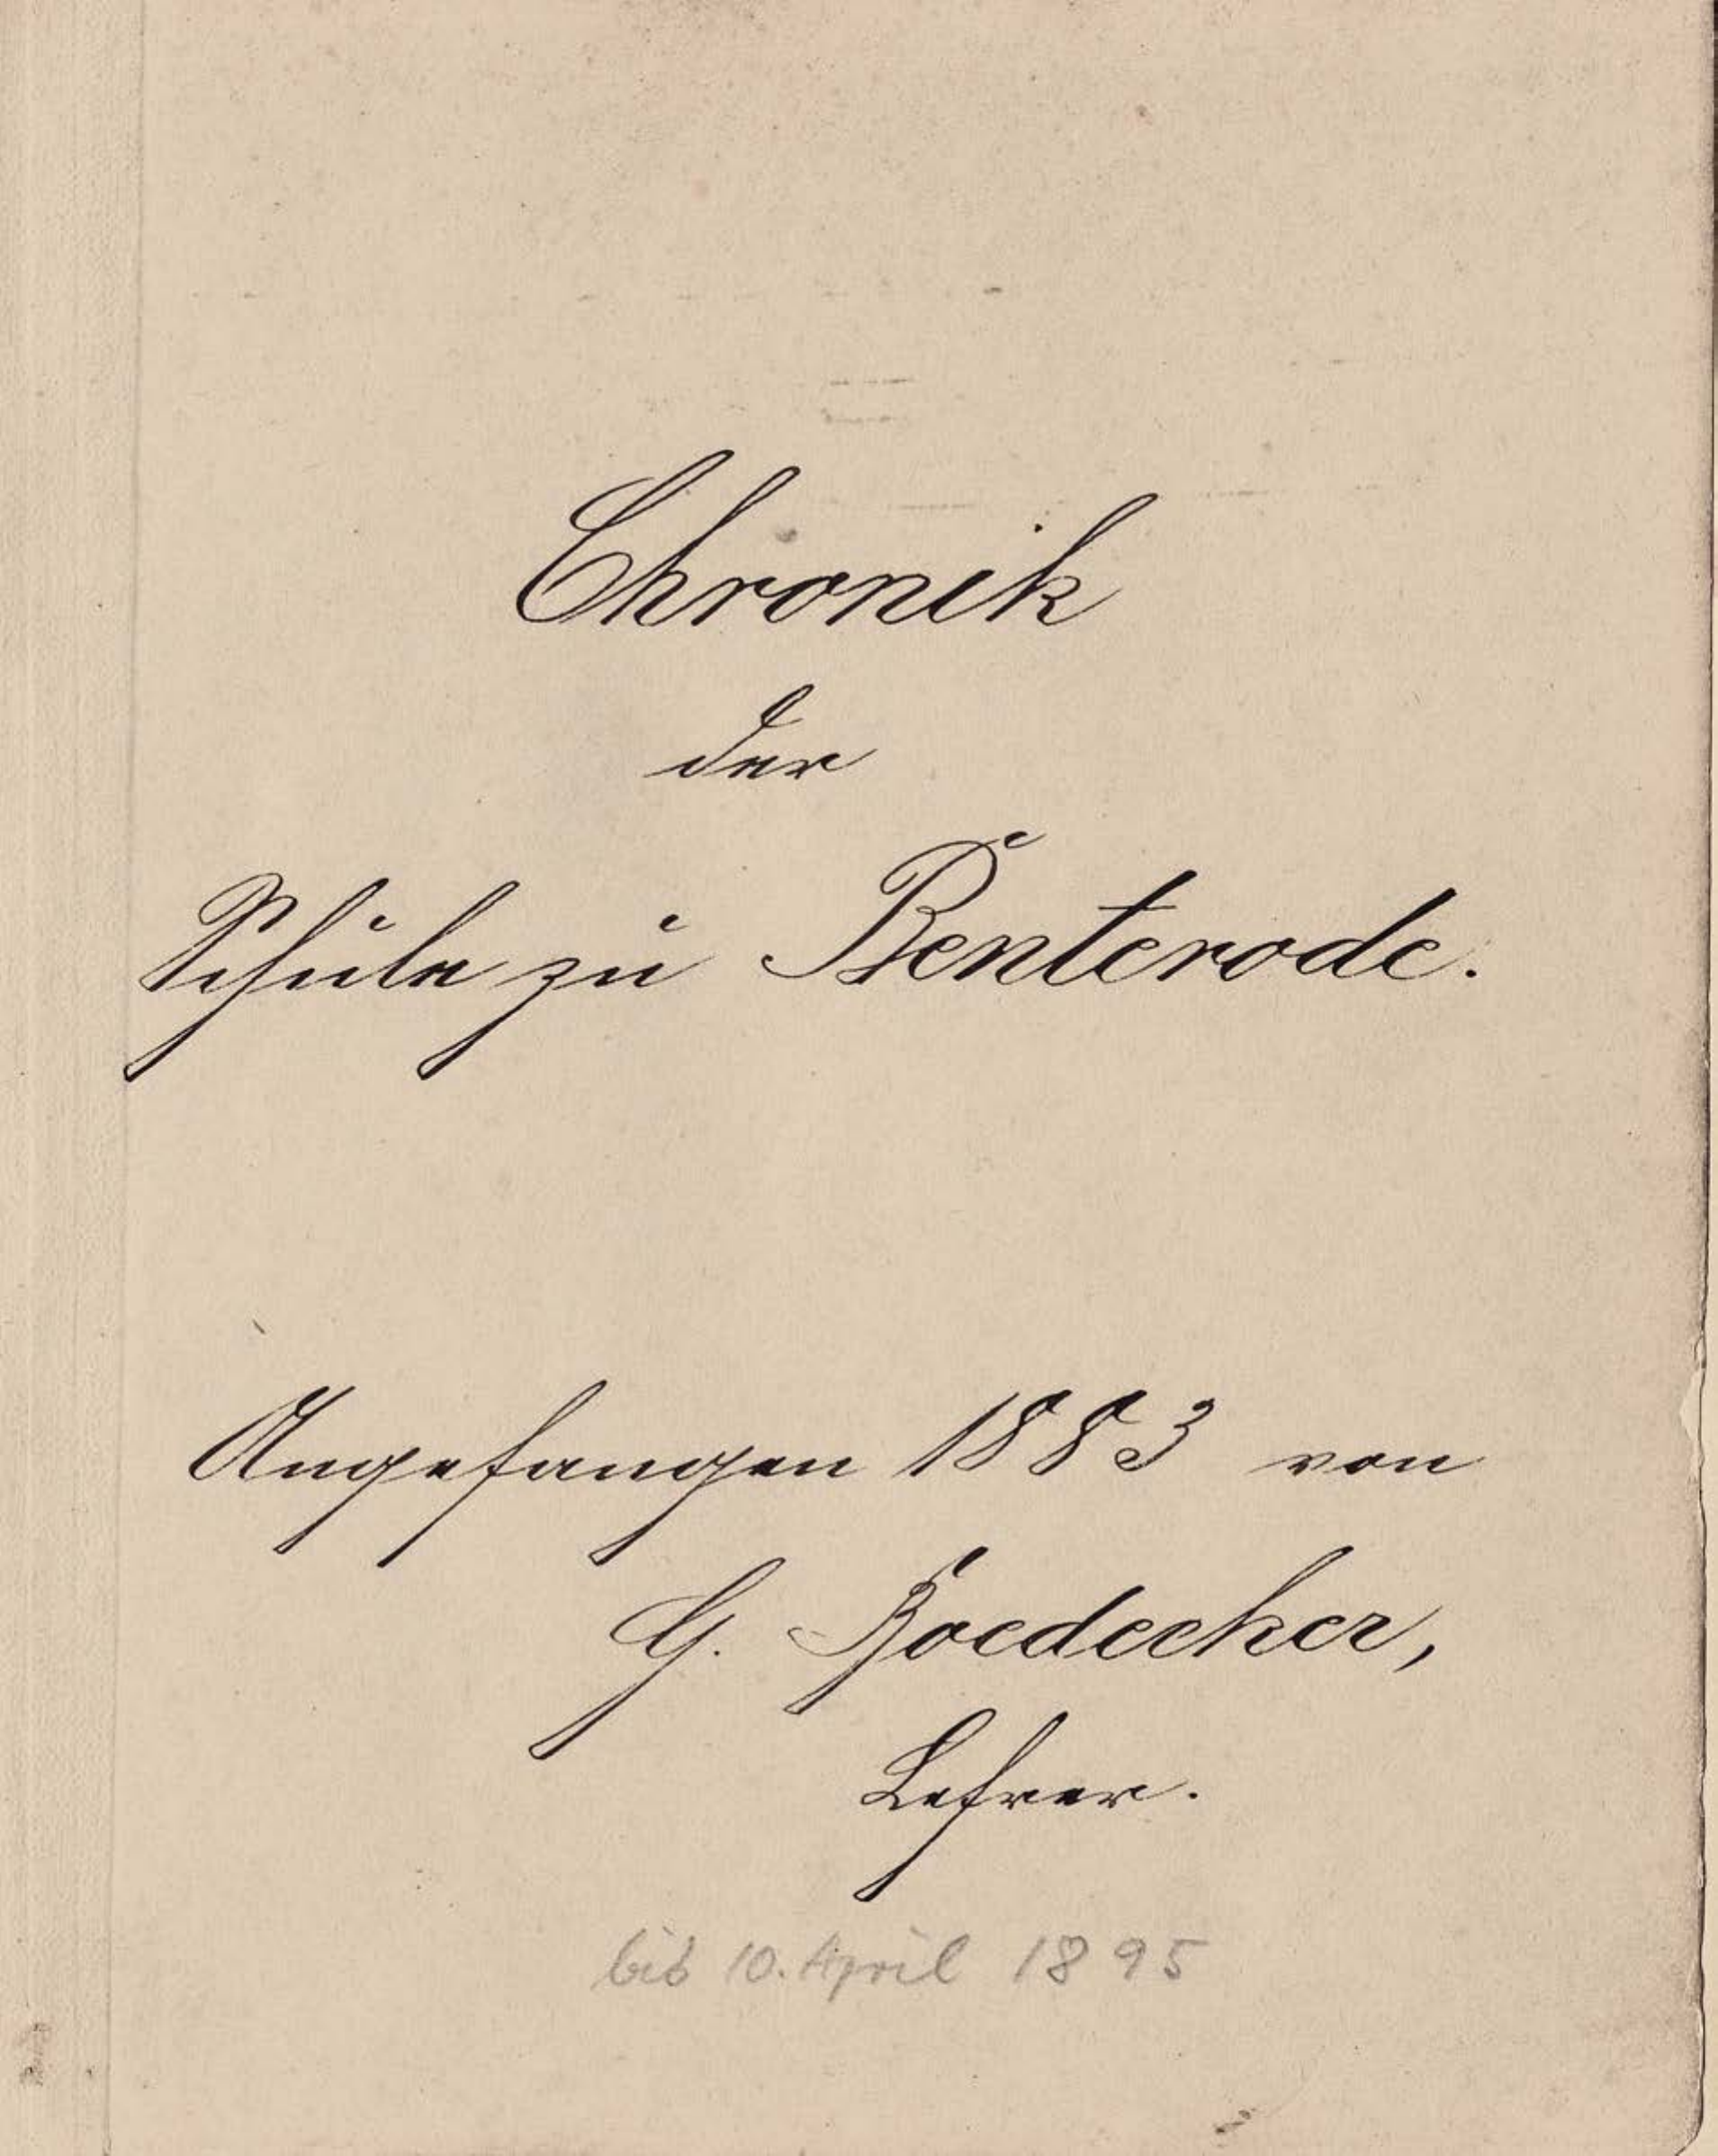 Chronik
der
Schule zu Benterode.
Angefangen 1883 von
G. Boedecker,
Lehrer.
bis 10. April 1895